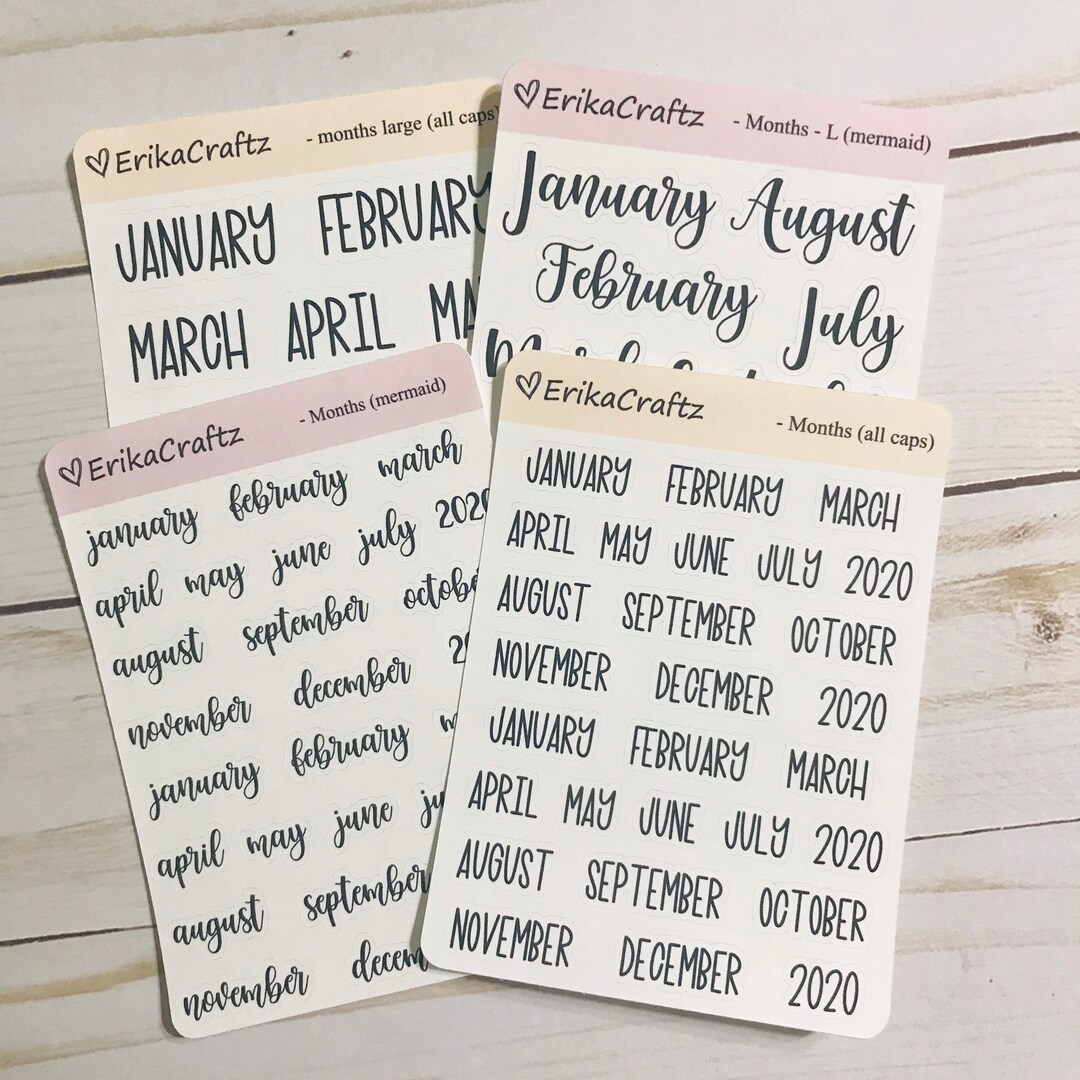 ErikaCraftz - months large (all caps)
JANUARY FEBRUARY
MARCH APRIL
ErikaCraftz - Months - L (mermaid)
January August
February July
ErikaCraftz - Months (mermaid)
january february march
april may june july 2020
august september october
november december
january february
april may june
august september
november
ErikaCraftz - Months (all caps)
JANUARY FEBRUARY MARCH
APRIL MAY JUNE JULY 2020
AUGUST SEPTEMBER OCTOBER
NOVEMBER DECEMBER 2020
JANUARY FEBRUARY MARCH
APRIL MAY JUNE JULY 2020
AUGUST SEPTEMBER OCTOBER
NOVEMBER DECEMBER 2020